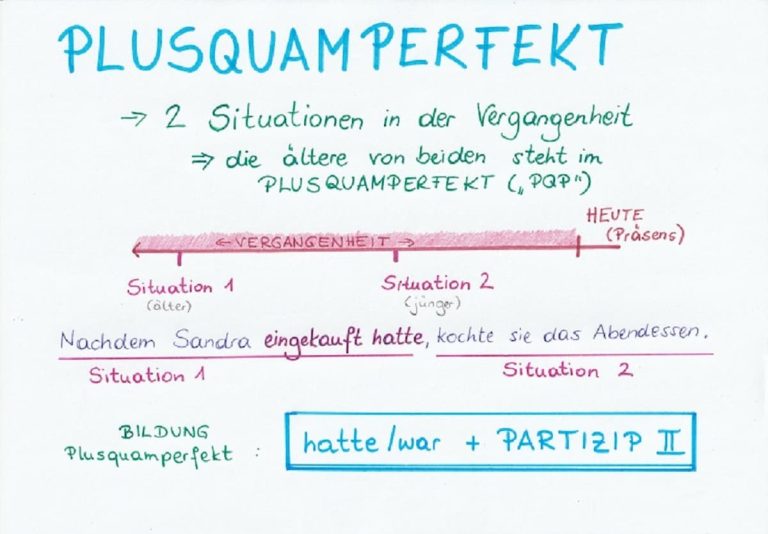 PLUSQUAMPERFEKT
→ 2 Situationen in der Vergangenheit
⇒ die ältere von beiden steht im
PLUSQUAMPERFEKT („PQP")
HEUTE
(Präsens)
← VERGANGENHEIT →
Situation 1
(älter)
Situation 2
(jünger)
Nachdem Sandra eingekauft hatte, kochte sie das Abendessen.
Situation 1
Situation 2
BILDUNG
Plusquamperfekt :
hatte/war + PARTIZIP II